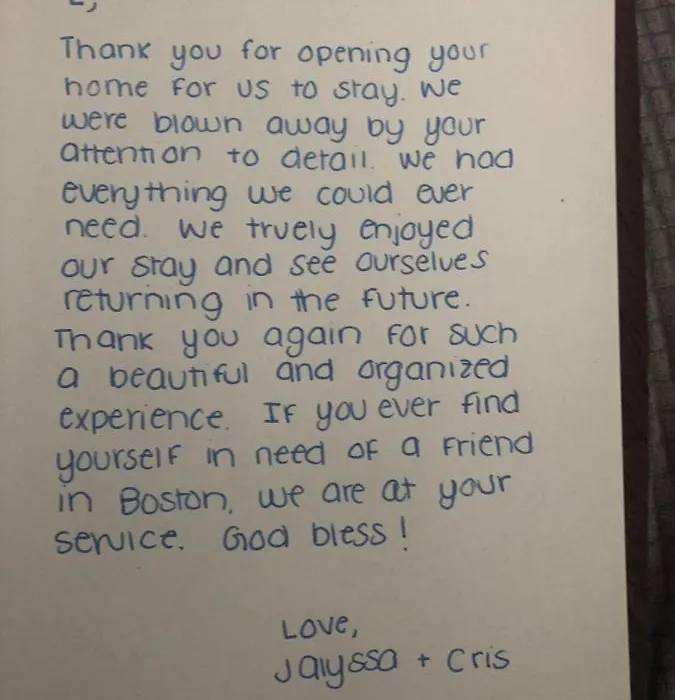 Thank you for opening your
home for us to stay. We
were blown away by your
attention to detail. We had
everything we could ever
need. We truely enjoyed
our stay and see ourselves
returning in the future.
Thank you again for such
a beautiful and organized
experience. If you ever find
yourself in need of a friend
in Boston, we are at your
service. God bless!
Love,
Jalyssa + Cris